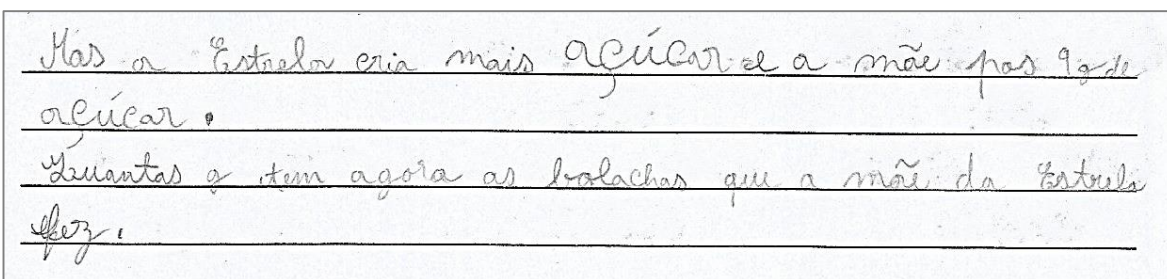 Mas a Estrela cria mais açúcar e a mãe pos 9g de
açúcar.
Quantas g tem agora as bolachas que a mãe da Estrela
fez.